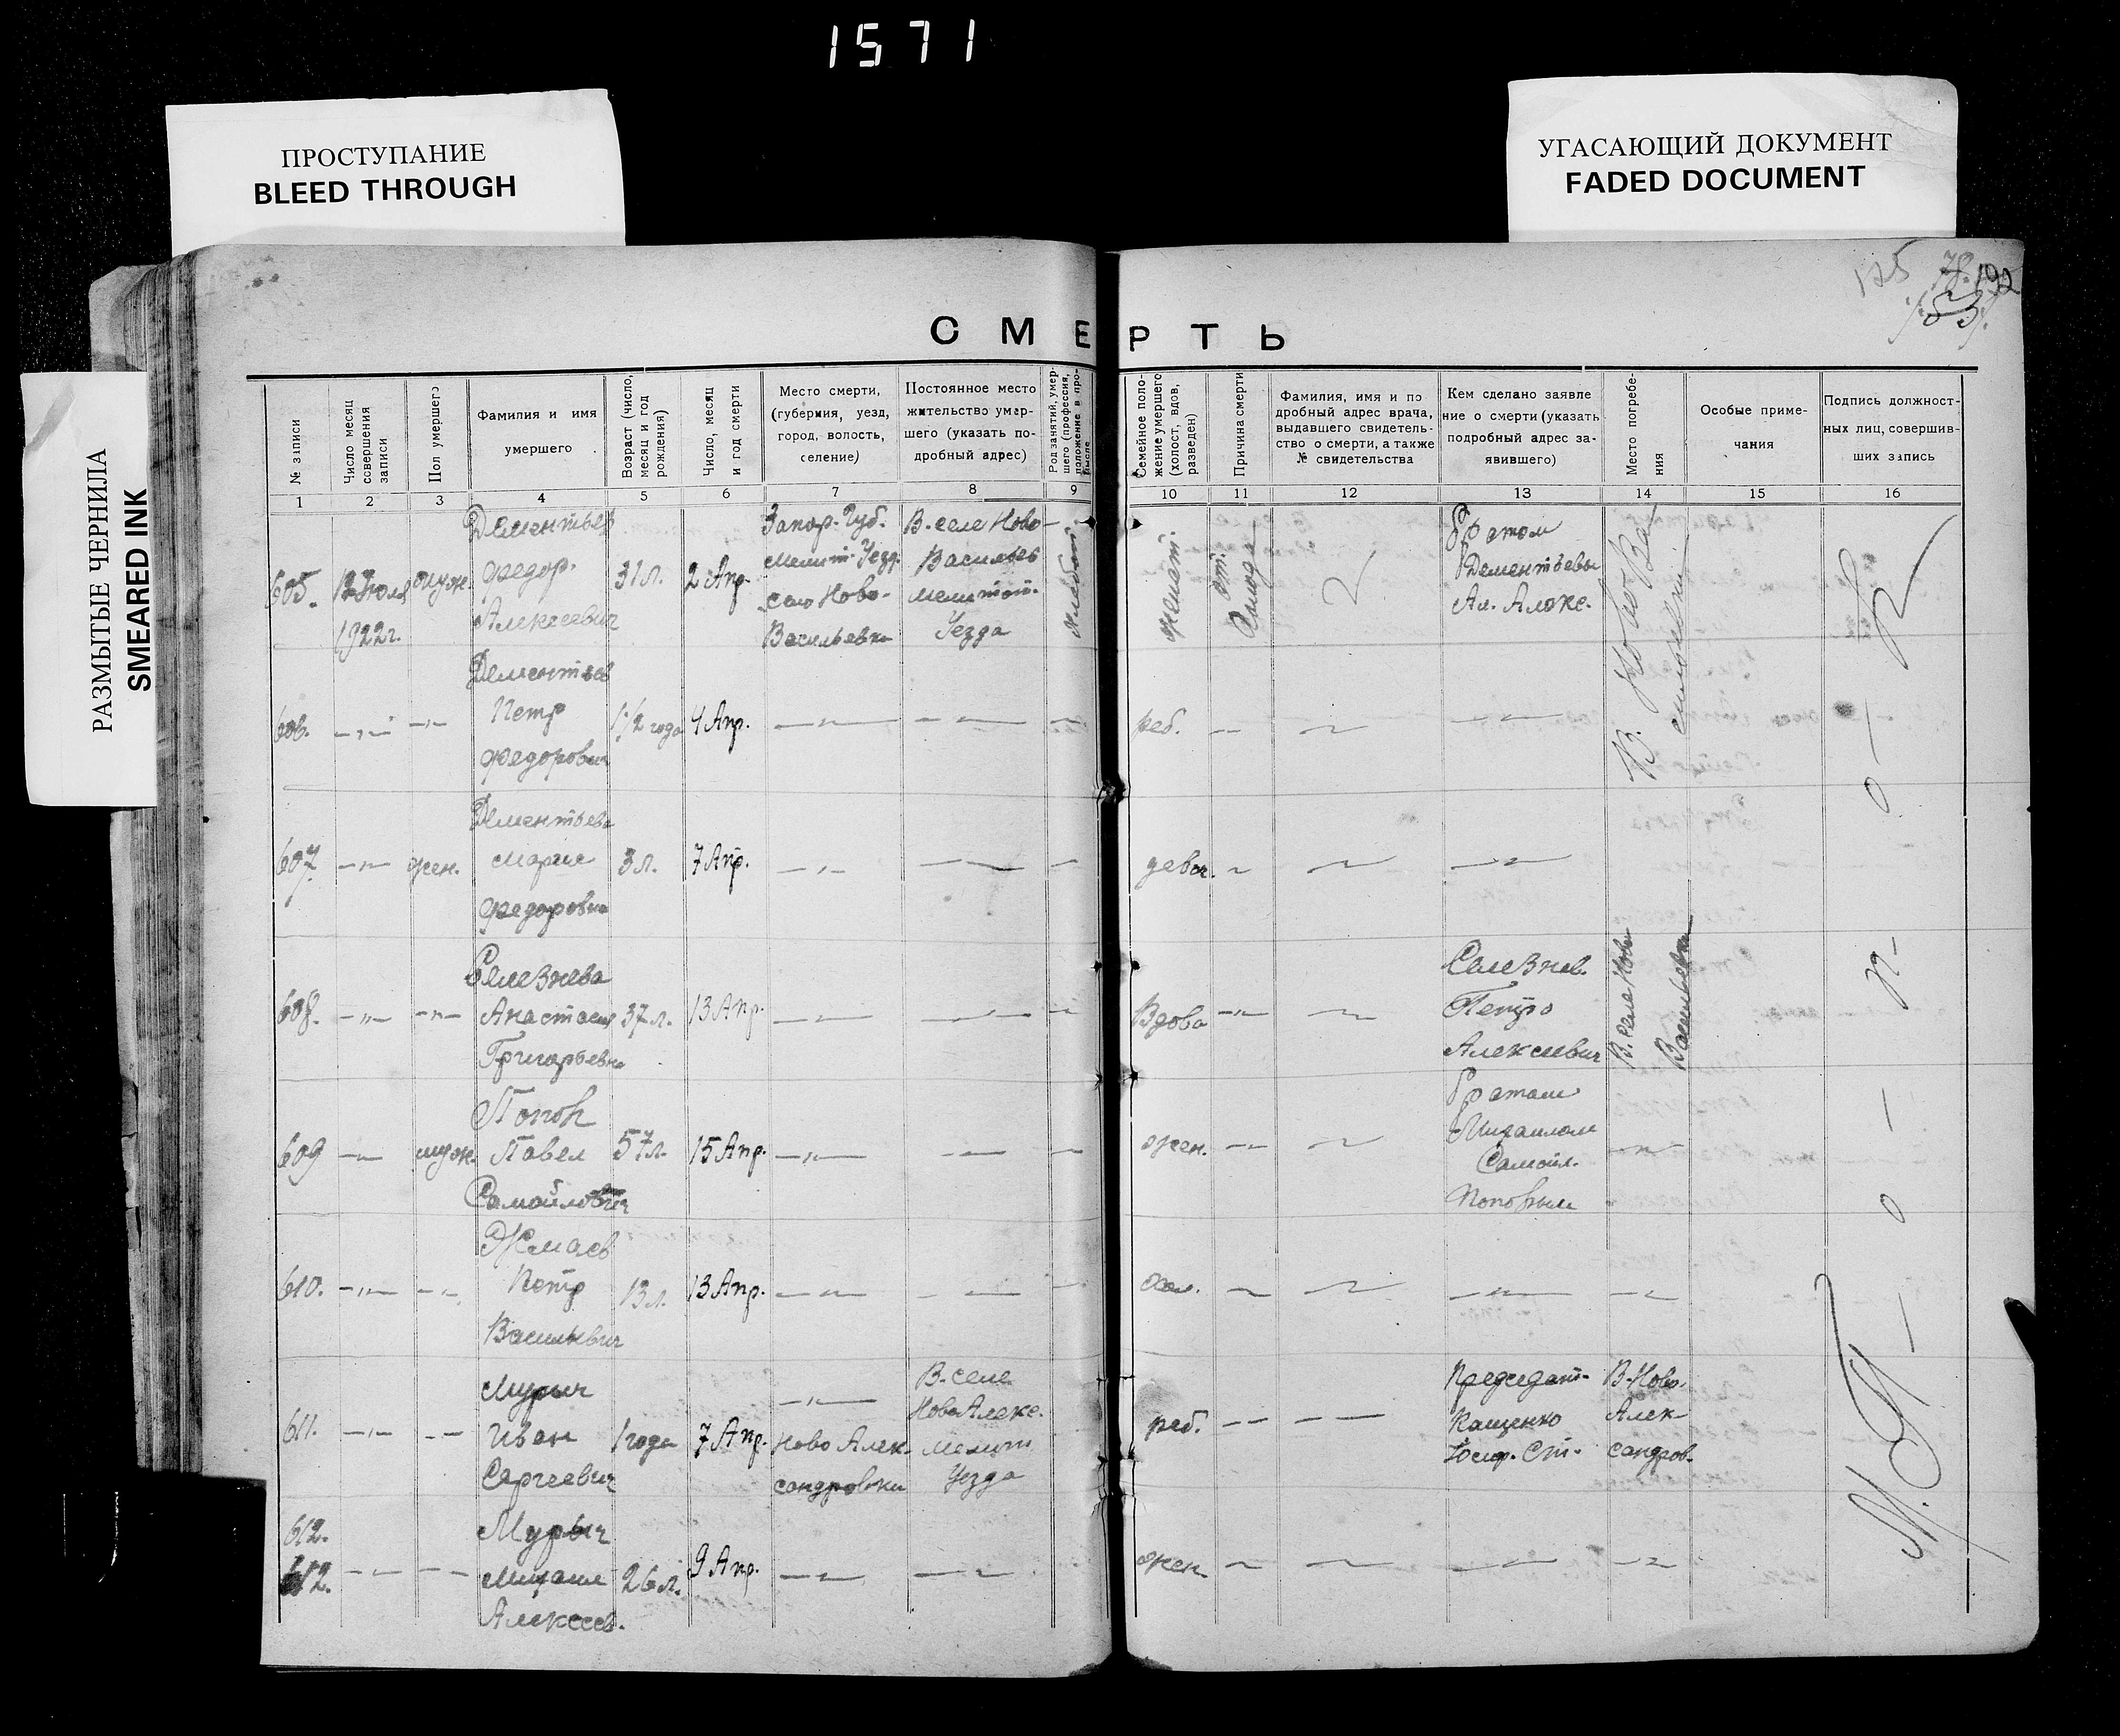 1571
ПРОСТУПАНИЕ
BLEED THROUGH
УГАСАЮЩИЙ ДОКУМЕНТ
FADED DOCUMENT
РАЗМЫТЫЕ ЧЕРНИЛА
SMEARED INK
125 78. 192
СМЕРТЬ
№ записи
Число месяц совершения записи
Пол умершего
Фамилия и имя умершего
Возраст (число, месяц и год рождения)
Число, месяц и год смерти
Место смерти, (губерния, уезд, город, волость, селение)
Постоянное место жительство умершего (указать подробный адрес)
Род занятий, умершего (профессия, положение в промысле
Семейное положение умершего (холост, вдов, разведен)
Причина смерти
Фамилия, имя и подробный адрес врача, выдавшего свидетельство о смерти, а также № свидетельства
Кем сделано заявление о смерти (указать подробный адрес заявившего)
Место погребения
Особые примечания
Подпись должностных лиц, совершивших запись
1 2 3 4 5 6 7 8 9 10 11 12 13 14 15 16
605. 12 Июля 1922г. муж. Дементьев Федор. Алексеевич 31 л. 2 Апр. Запор. Губ. Мелит. Уезд. село Ново-Васильевка В. селе Ново-Васильев Мелитоп. Уезда Хлебоп. женат. от. Голода Братом Дементьевы Ал. Алекс. В. Ново Ва
606. —„— —„— Дементьев Петр Федорович 1 1/2 года 4 Апр. —„— —„— —„— реб. —„—
607. —„— жен. Дементьева Мария Федоровна 3 л. 7 Апр. —„— —„— — девоч. —„—
608. —„— —„— Селезнева Анастасия Григорьевна 37 л. 13 Апр. —„— —„— — Вдова —„— Селезнев Петро Алексеевич В. селе Ново Васильевка
609 —„— муж. Попов Павел Самойлович 57 л. 15 Апр. —„— —„— — жен. —„— Братом Михаилом Самойл. Поповым —„—
610. —„— —„— Жмаев Петр Васильевич 13 л. 13 Апр. —„— —„— — хол. —„— —„—
611. —„— —„— Мурыч Иван Сергеевич 1 года 7 Апр. —„— Ново Александровки В. селе Ново Алекс. Мелит Уезда реб. —„— Председат. Кащенко Иосиф. Ст. В. Ново. Александров.
612.
612. —„— —„— Мурыч Михаил Алексеев. 26 л. 9 Апр. —„— —„— жен. —„— —„—